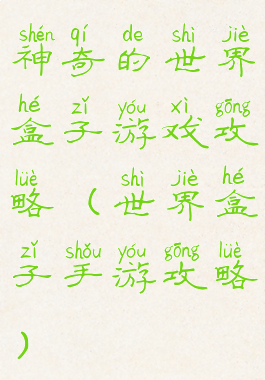 shén qí de shì jiè
神奇的世界
hé zǐ yóu xì gōng
盒子游戏攻
lüè shì jiè hé
略（世界盒
zǐ shǒu yóu gōng lüè
子手游攻略
）